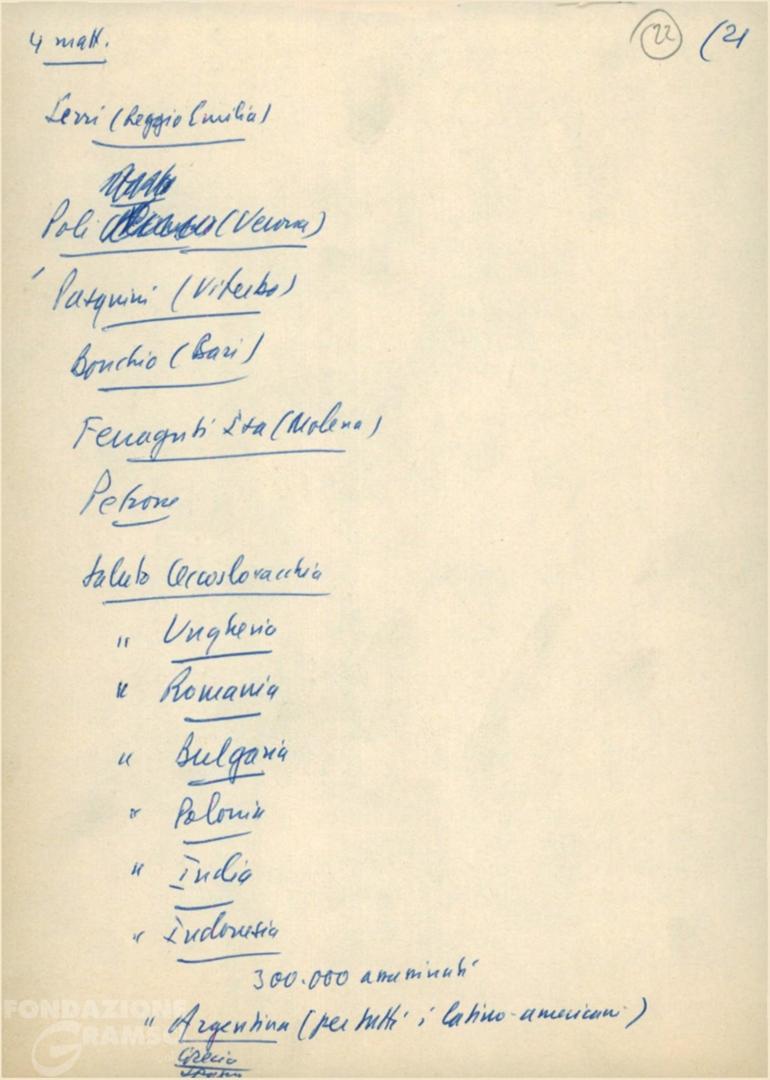 4 matt.
22 (21
Serri (Reggio Emilia)
Poli (Verona)
Pasquini (Viterbo)
Bonchio (Bari)
Ferraguti Isa (Modena)
Petrone
Saluto Cecoslovacchia
" Ungheria
" Romania
" Bulgaria
" Polonia
" India
" Indonesia
300.000 assassinati
" Argentina (per tutti i latino-americani)
Grecia
FONDAZIONE
GRAMSCI